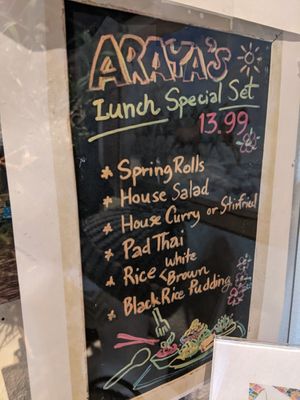 ARAYA'S
Lunch Special Set
13.99
* Spring Rolls
* House Salad
* House Curry or Stirfried
* Pad Thai
* Rice < White
Brown
* Black Rice Pudding